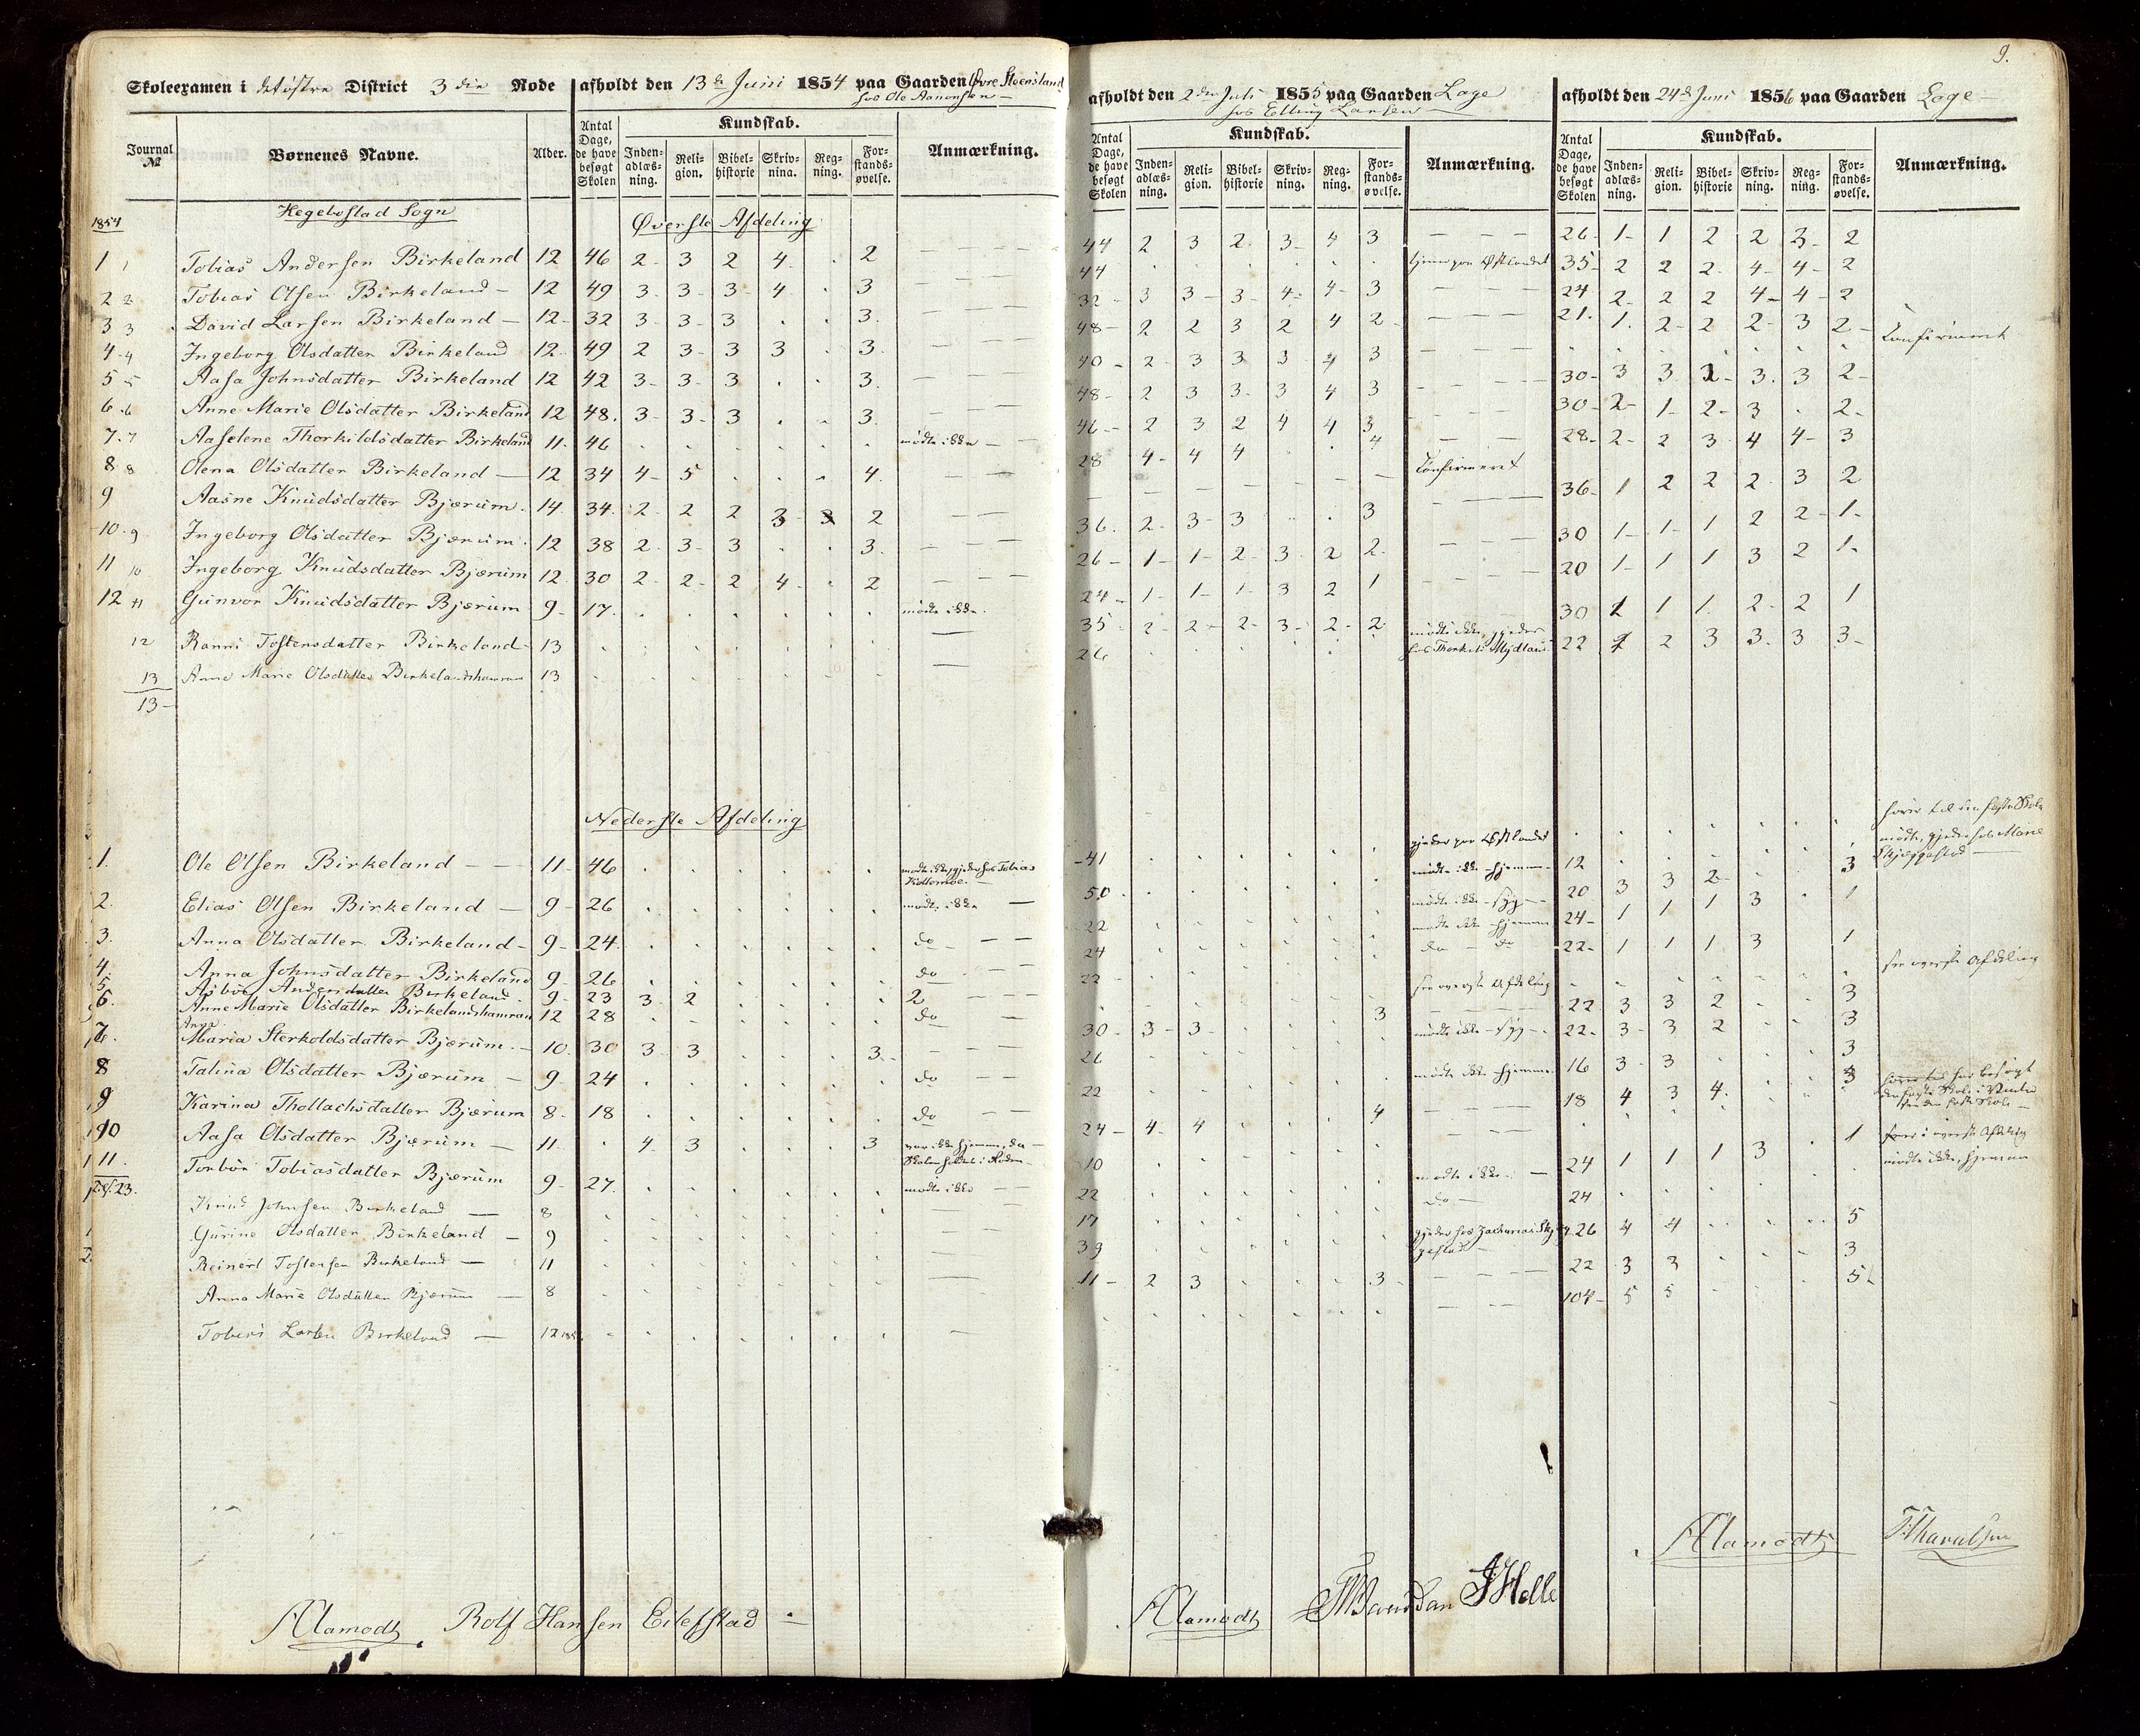 9.
Skoleexamen i det østre District 3 die Rode afholdt den 13de Juni 1854 paa Gaarden Øvre Stoensland
hos Ole Aanensen
Journal № Børnenes Navne. Alder. Antal Dage, de have besøgt Skolen Kundskab. Anmærkning.
Inden-adlæs-ning. Reli-gion. Bibel-historie Skriv-nina. Reg-ning. For-stands-øvelse.
1854 Hegebostad Sogn Øverste Afdeling
1 1 Tobias Andersen Birkeland 12 46 2 3 2 4 . 2
2 2 Tobias Olsen Birkeland 12 49 3 3 3 4 . 3
3 3 David Larsen Birkeland 12 32 3 3 3 . . 3
4 4 Ingeborg Olsdatter Birkeland 12 49 2 3 3 3 . 3
5 5 Aasa Johnsdatter Birkeland 12 42 3 3 3 . . 3
6 6 Anne Marie Olsdatter Birkeland 12 48 3 3 3 . . 3
7 7 Aaselene Thorkildsdatter Birkeland 11 46 . . . . . . mødte ikke
8 8 Olena Olsdatter Birkeland 12 34 4 5 . . . 4
9 Aasne Knudsdatter Bjærum 14 34 2 2 2 3 3 2
10 9 Ingeborg Olsdatter Bjærum 12 38 2 3 3 . . 3
11 10 Ingeborg Knudsdatter Bjærum 12 30 2 2 2 4 . 2
12 11 Gunvor Knudsdatter Bjærum 9 17 . . . . . . mødte ikke
12 Ranni Tostensdatter Birkeland 13
13 Anne Marie Olsdatter Birkelandshamran 13
13
Nederste Afdeling
1. Ole Olsen Birkeland 11 46 . . . . . . mødte ikke, gjeder hos Tobias
2. Elias Olsen Birkeland 9 26 . . . . . . mødte ikke
3. Anna Olsdatter Birkeland 9 24 . . . . . . do
4. Anna Johnsdatter Birkeland 9 26 . . . . . . do
5. Asbør Andersdatter Birkeland 9 23 3 2 . . . . 2
6. Anne Marie Olsdatter Birkelandshamran 12 28 . . . . . . do
7. Anna Maria Sterkoldsdatter Bjærum 10 30 3 3 . . . 3
8 Talina Olsdatter Bjærum 9 24 . . . . . . do
9 Karina Thollachsdatter Bjærum 8 18 . . . . . . do
10 Aasa Olsdatter Bjærum 11 . 4 3 . . . 3 var ikke hjemme, da
Skolen holdtes i Roden
11. Torbør Tobiasdatter Bjærum 9 27 . . . . . . mødte ikke
23. Knud Johnsen Birkeland 8
Gurine Olsdatter Birkeland 9
Reinert Tostensen Birkeland 11
Anna Marie Olsdatter Bjærum 8
Tobias Larsen Birkeland 12
Alamodt Rolf Hansen Eilefstad
afholdt den 2den Juli 1855 paa Gaarden Lage
hos Elling Larsen
Antal Dage, de have besøgt Skolen Kundskab. Anmærkning.
Inden-adlæs-ning. Reli-gion. Bibel-historie Skriv-ning. Reg-ning. For-stands-øvelse.
44 2 3 2 3 4 3
44 . . . . . . tjener paa Østlandet
32 3 3 3 4 4 3
48 2 2 3 2 4 2
40 2 3 3 3 4 3
48 2 3 3 3 4 3
46 2 3 2 4 4 3
28 4 4 4 . . 4
Confirmeret
36 2 3 3 . . 3
26 1 1 2 3 2 2
24 1 1 1 3 2 1
35 2 2 2 3 2 2
26 . . . . . . mødte ikke, gjeder
hos Thorkel Mydland
41 . . . . . . gjeder paa Østlandet
50 . . . . . . mødte ikke hjemme
22 . . . . . . mødte ikke syg
24 . . . . . . mødte ikke hjemme
22 . . . . . . do do
see øverste Afdeling
30 3 3 . . . 3
26 . . . . . . mødte ikke syg
22 . . . . . . mødte ikke hjemme
24 4 4 . . . 4
10 . . . . . .
22 . . . . . . mødte ikke
17 . . . . . . do
39 . . . . . . gjeder hos Zacharias
11 2 3 . . . 3
Alamodt JHelle
afholdt den 24de Juni 1856 paa Gaarden Lage
Antal Dage, de have besøgt Skolen Kundskab. Anmærkning.
Inden-adlæs-ning. Reli-gion. Bibel-historie Skriv-ning. Reg-ning. For-stands-øvelse.
26 1 1 2 2 3 2
35 2 2 2 4 4 2
24 2 2 2 4 4 2
21 1 2 2 2 3 2
. . . . . . Confirmeret
30 3 3 2 3 3 2
30 2 1 2 3 . 2
28 2 2 3 4 4 3
36 1 2 2 2 3 2
30 1 1 1 2 2 1
20 1 1 1 3 2 1
30 1 1 1 2 2 1
22 2 2 3 3 3 3
hører til den faste Skole
12 . . . . . . mødte, gjeder hos Marie
Skjeggestad
20 3 3 2 . . 3
24 1 1 1 3 . 1
22 1 1 1 3 . 1
see øverste Afdeling
22 3 3 2 . . 3
22 3 3 2 . . 3
16 3 3 . . . 3
18 4 3 4 . . 3
24 1 1 1 3 . 1 øverste Afdeling
24 . . . . . . mødte ikke, hjemme
26 4 4 . . . 5
22 3 3 . . . 3
104 5 5 . . . 5
Alamodt